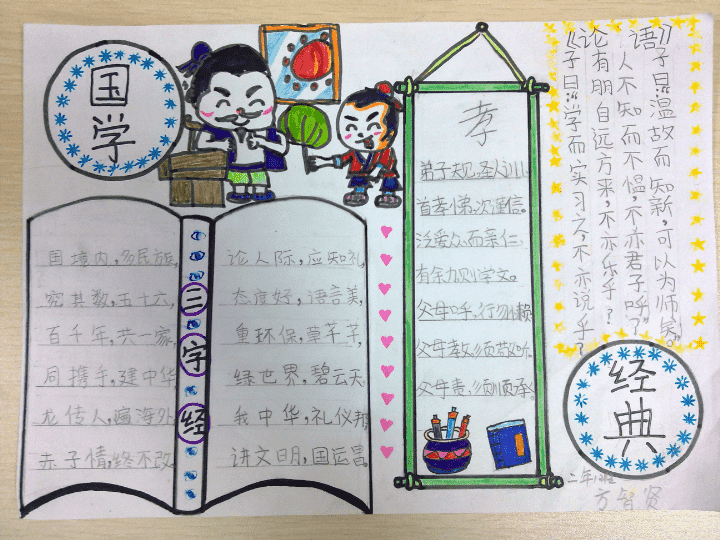 国学
国境内,多民族,
究其数,五十六,
百千年,共一家,
同携手,建中华
龙传人,遍海外
赤子情,终不改,
三字经
论人际,应知礼,
态度好,语言美,
重环保,草芊芊,
绿世界,碧云天
我中华,礼仪邦
讲文日月,国运昌。
孝
弟子规,圣人训。
首孝悌,次谨信。
泛爱众,而亲仁,
有余力,则学文。
父母呼,行勿懒
父母教,须敬听,
父母责,须顺承。
语》子曰:“温故而知新,可以为师矣。”
人不知而不愠,不亦君子呼?”
论有朋自远方来,不亦乐乎?
《子曰:“学而实习之,不亦说乎?
经典
二年班
方智贤